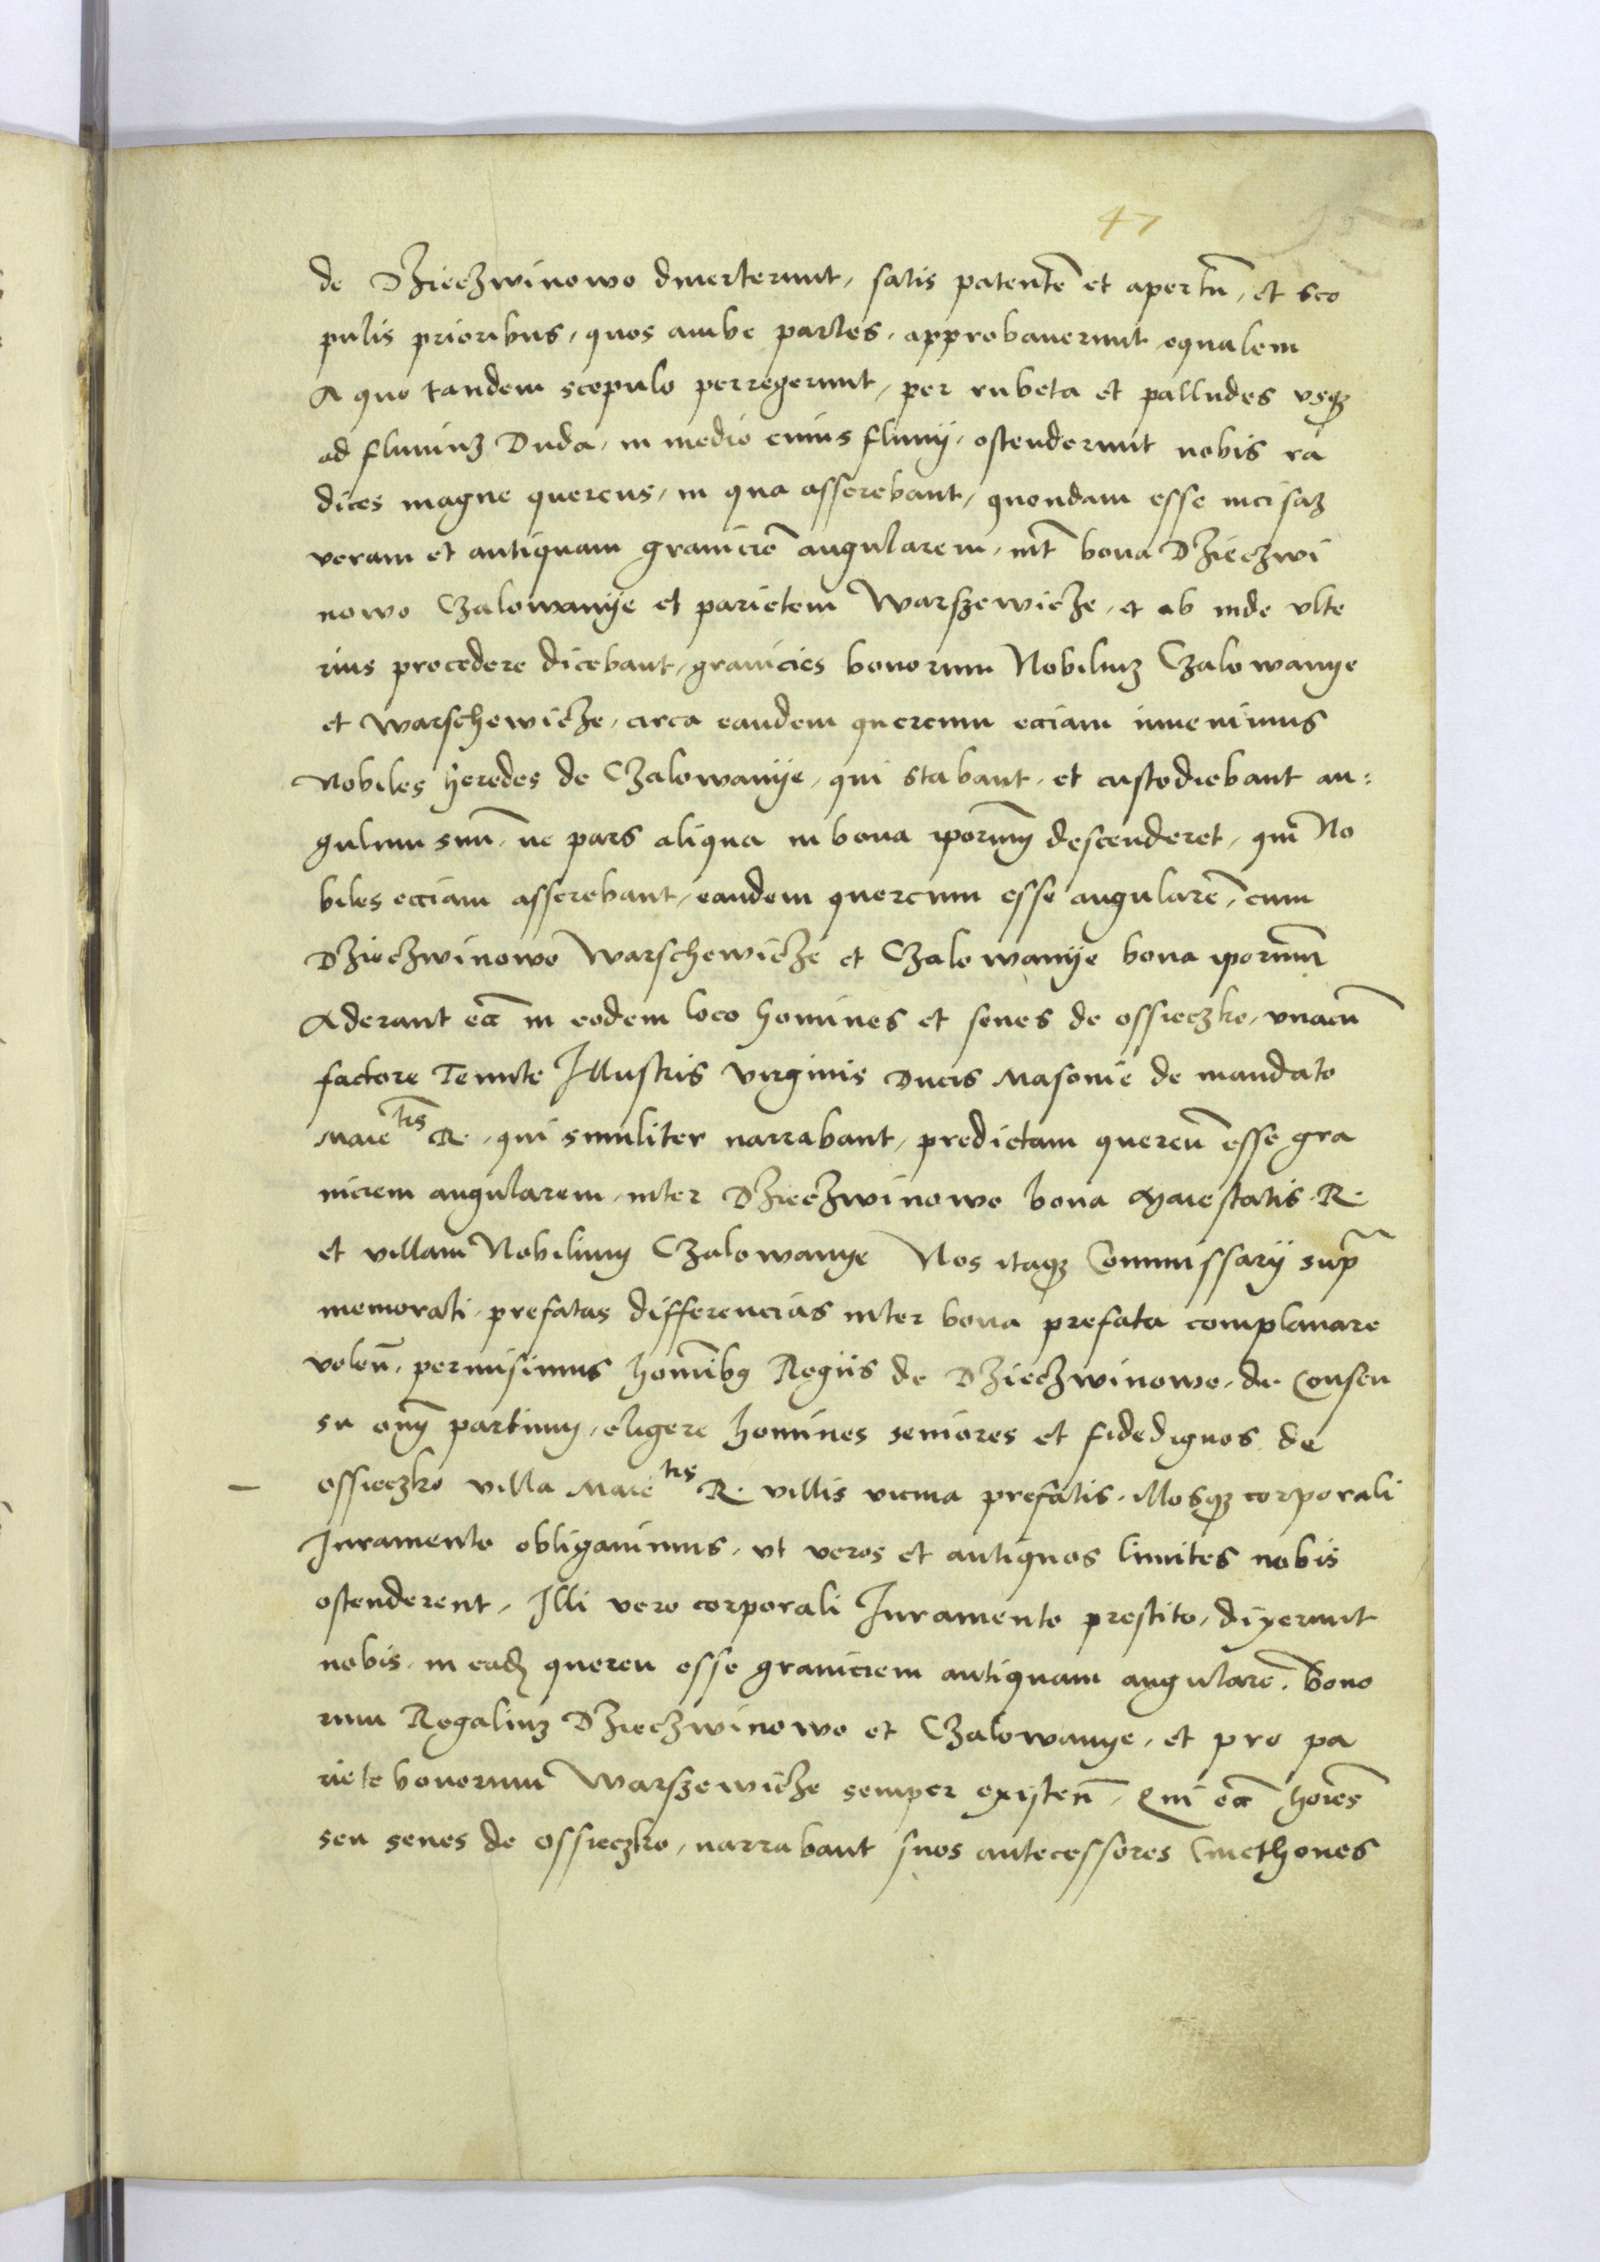 47
de Dzieczwinowo diuerterunt, satis patentē et apertū, et sco
pulis prioribus, quos ambe partes, approbauerunt equalem
A quo tandem scopulo perregerunt, per rubeta et palludes vsqȝ
ad fluuiuȝ Duda, in medio cuius fluuij, ostenderunt nobis ra
dices magne quercus, in qua asserebant, quondam esse incisaȝ
veram et antiquam graniciē angularem, int̄ bona Dzieczwi
nowo Czalowanije et parietem Warszewicze, et ab inde vlte
rius procedere dicebant, granicies bonorum Nobiliuȝ Czalowanye
et Warschewicze, circa eandem quercum eciam inuenimus
Nobiles heredes de Czalowanije, qui stabant, et custodiebant an:
gulum suū, ne pars aliqua in bona ipōrum descenderet, qui No
biles eciam asserebant, eandem quercum esse angularē, cum
Dzieczwinowo Warschewicze et Czalowanije bona ipōrum
Aderant ec̄ in eodem loco homines et senes de ossieczko, vnacū
factore Tenute Illustris virginis Ducis Masouie de mandato
Maietis R. qui similiter narrabant, predictam quercū esse gra
niciem angularem, inter Dzieczwinowo bona Maiestatis R.
et villam Nobilium Czalowanye Nos itaqȝ Commissarij sup̄
memorati, prefatas differencias inter bona prefata complanare
volen̄, permisimus homībȝ Regiis de Dzieczwinowo, de Consen
su om̄ partium, eligere homines seniores et fidedignos de
ossieczko villa Maietis R. villis vicina prefatis, illosqȝ corporali
Iuramento obligauimus, vt veros et antiquos limites nobis
ostenderent, Illi vero corporali Iuramento prestito, dixerunt
nobis, in eadȝ quercu esse graniciem antiquam angularē, bono
rum Regaliuȝ Dzieczwinowo et Czalowanye, et pro pa
riete bonorum Warszewicze semper existen̄, Qui ec̄ hoīes
seu senes de ossieczko, narrabant suos antecessores Cmethones